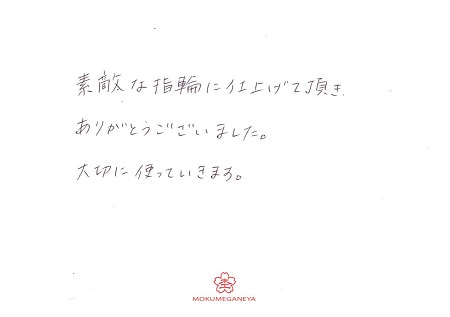 素敵な指輪に仕上げて頂き
ありがとうございました。
大切に使っていきます。
MOKUMEGANEYA